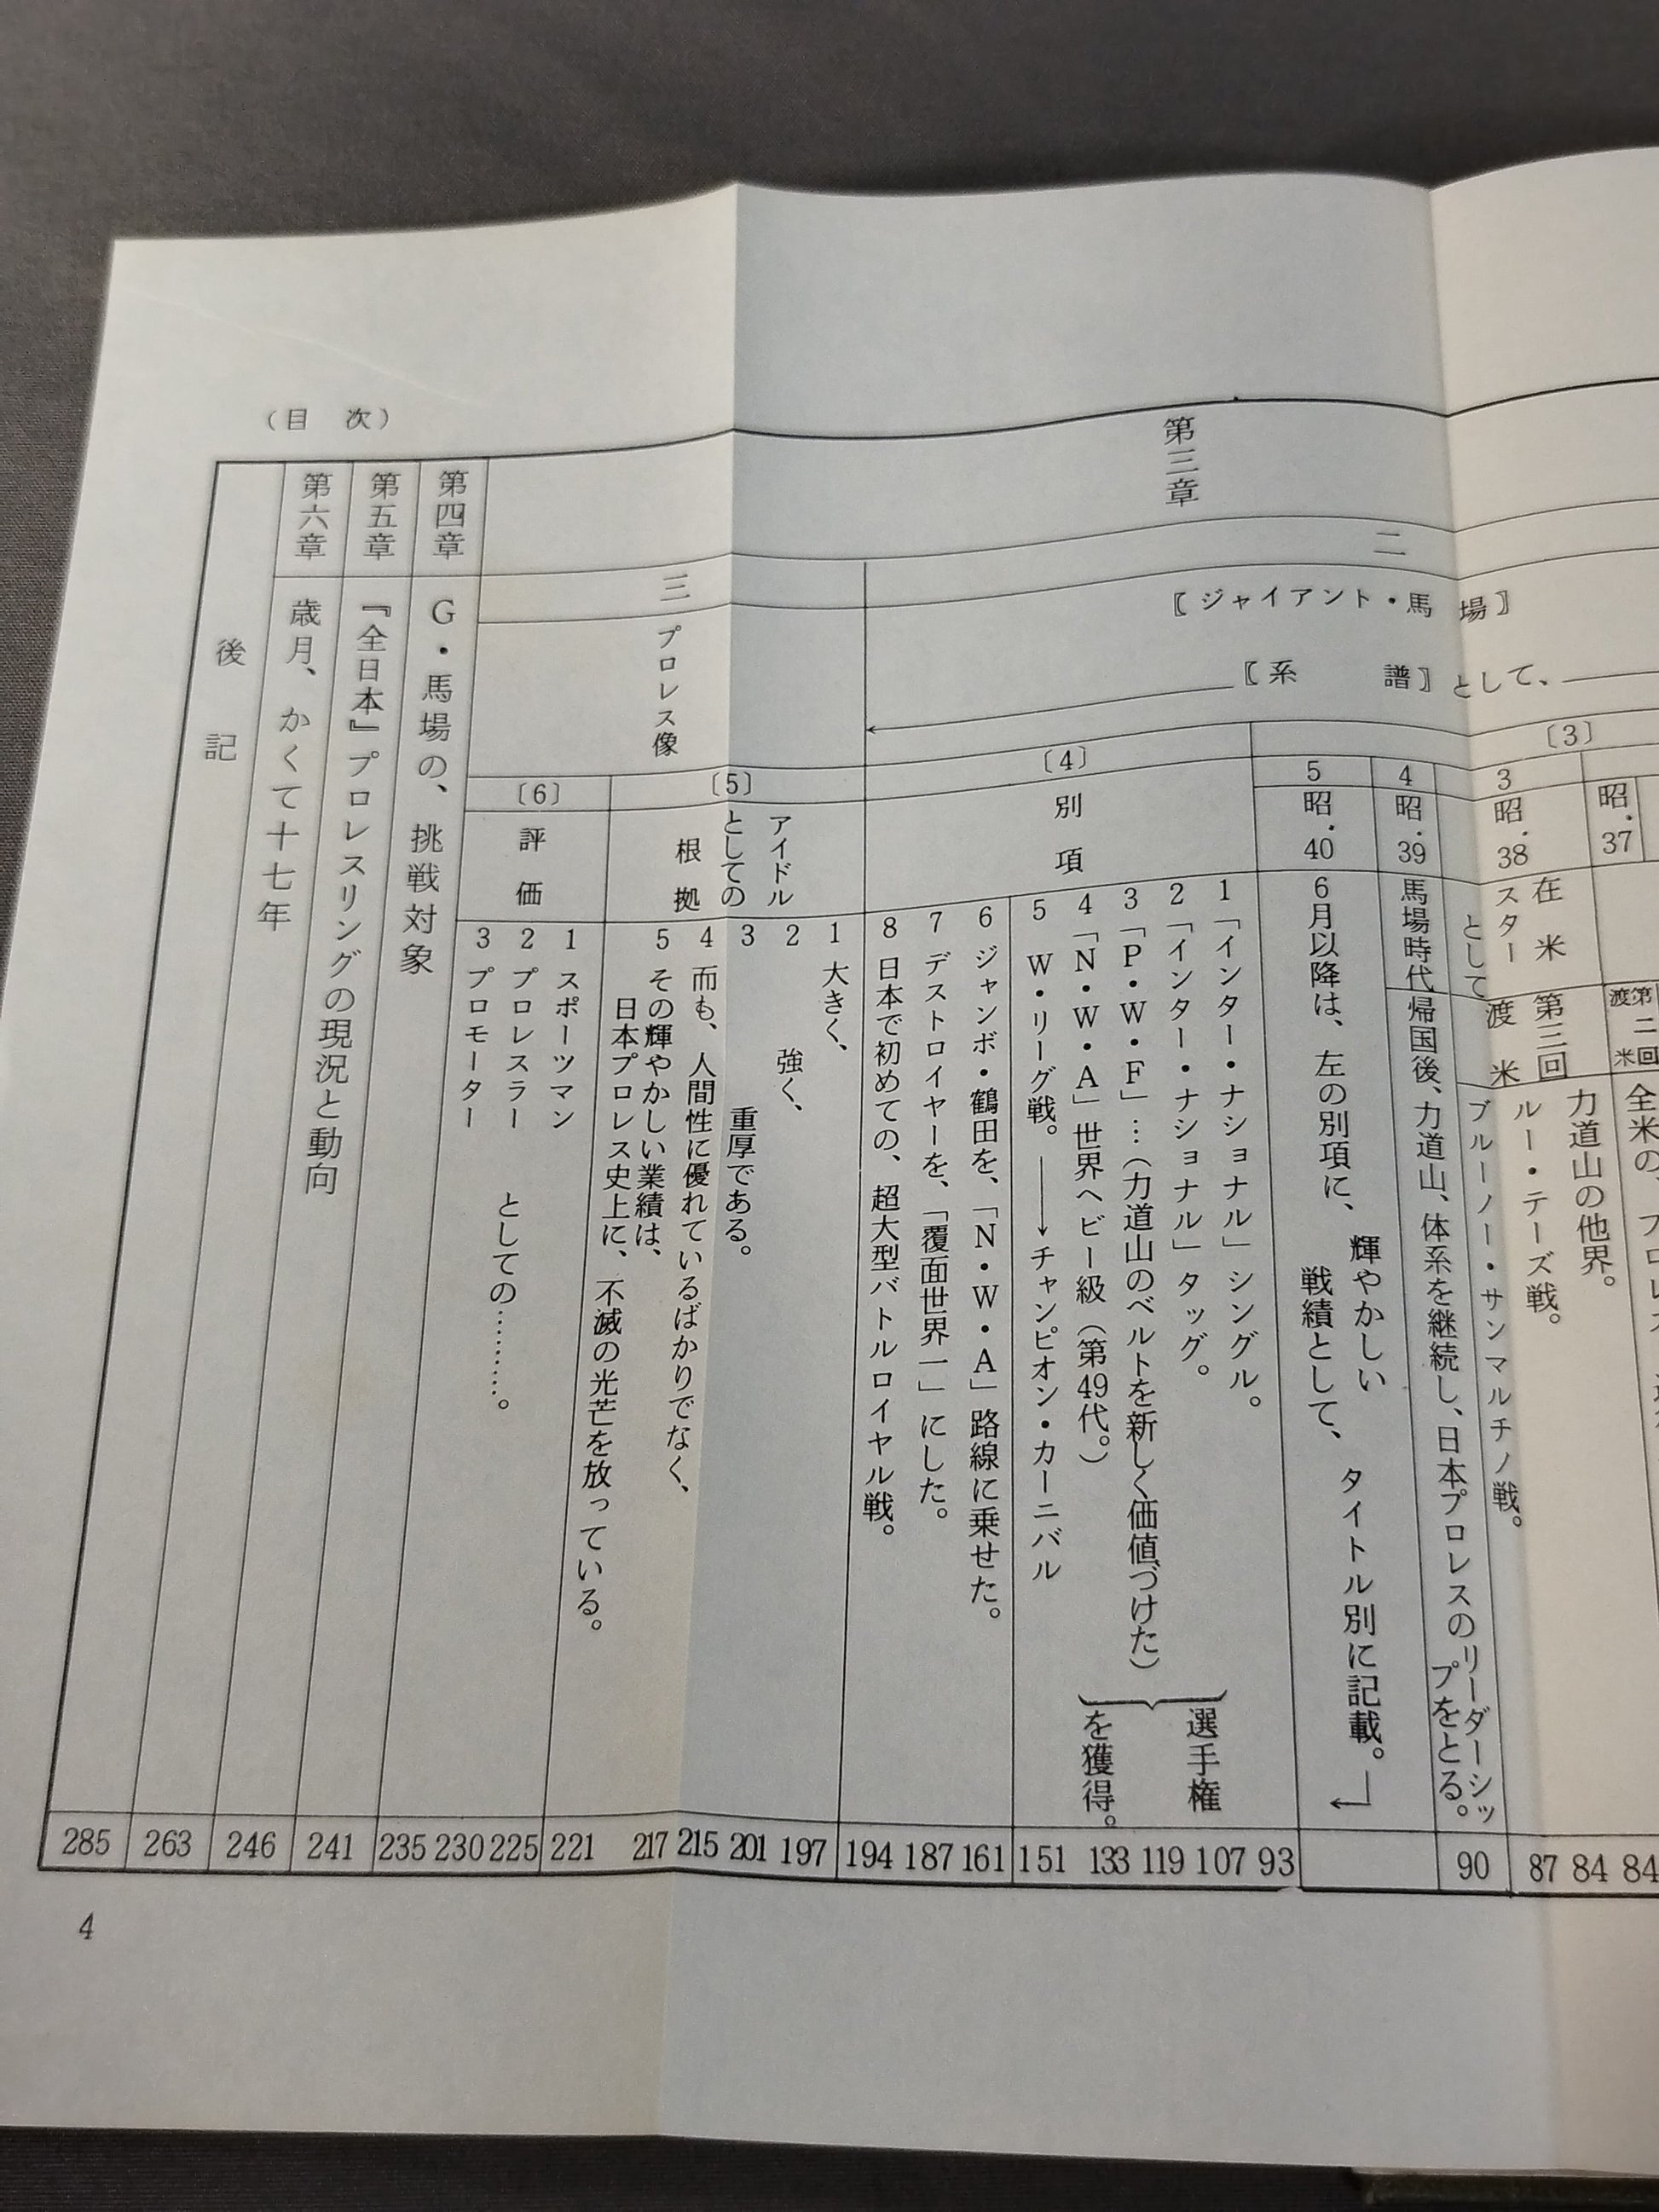 第三章
二
〖ジャイアント・馬場〗
〖系譜〗として、
〔3〕
昭.37
第二回渡米
全米の、プロレス
3
昭.38
在米
スター
として
第三回
渡米
力道山の他界。
ルー・テーズ戦。
ブルーノー・サンマルチノ戦。
4
昭.39
馬場時代
帰国後、力道山、体系を継続し、日本プロレスのリーダーシッ
プをとる。
5
昭.40
6月以降は、左の別項に、輝やかしい
戦績として、タイトル別に記載。
〔4〕
別項
1「インター・ナショナル」シングル。
2「インター・ナショナル」タッグ。
3「P・W・F」…(力道山のベルトを新しく価値づけた)
4「N・W・A」世界ヘビー級(第49代。)
選手権
を獲得。
5 W・リーグ戦。→チャンピオン・カーニバル
6 ジャンボ・鶴田を、「N・W・A」路線に乗せた。
7 デストロイヤーを、「覆面世界一」にした。
8 日本で初めての、超大型バトルロイヤル戦。
三
プロレス像
〔5〕
アイドル
としての
根拠
1 大きく、
2 強く、
3 重厚である。
4 而も、人間性に優れているばかりでなく、
5 その輝やかしい業績は、
日本プロレス史上に、不滅の光芒を放っている。
〔6〕
評価
1 スポーツマン
2 プロレスラー
3 プロモーター
としての………。
第四章
G・馬場の、挑戦対象
第五章
『全日本』プロレスリングの現況と動向
第六章
歳月、かくて十七年
後記
(目次)
285 263 246 241 235 230 225 221 217 215 201 197 194 187 161 151 133 119 107 93 90 87 84 84
4